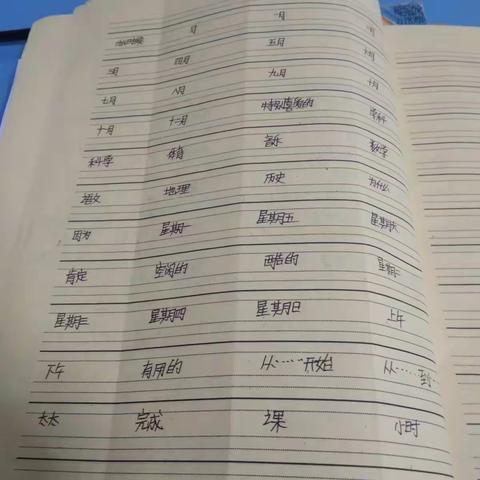 什么时候 月 一月 二月
三月 四月 五月 六月
七月 八月 九月 十月
十一月 十二月 特别喜爱的 学科
科学 体育 音乐 数学
语文 地理 历史 为什么
因为 星期一 星期五 星期六
肯定 空闲的 酷的 星期二
星期三 星期四 星期日 上午
下午 有用的 从……开始 从……到
太太 完成 课 小时